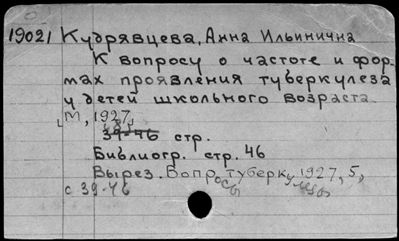 19021 Кудрявцева, Анна Ильинична
К вопросу о частоте и фор-
мах проявления туберкулеза
у детей школьного возраста.
М, 1927,
39-46 стр.
Библиогр. стр. 46
Вырез. Вопросы туберкулеза 1927, 5,
с 39-46